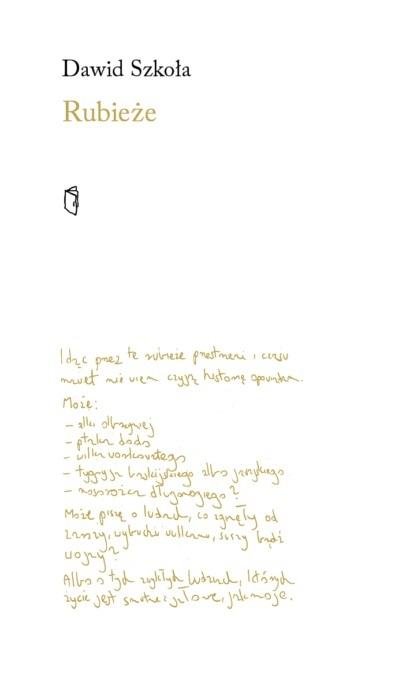 Dawid Szkoła
Rubieże
Idąc przez te rubieże przestrzeni i czasu
nawet nie wiem czyją historię opowiadam.
Może:
– alki olbrzymiej
– ptaka dodo
– wilka workowatego
– tygrysa kaspijskiego albo jawajskiego
– nosorożca długorogiego?
Może piszę o ludziach, co zginęły od
zarazy, wybuchu wulkanu, suszy bądź
wojny?
Albo o tych zwykłych ludziach, których
życie jest smutne i jałowe, jak moje.